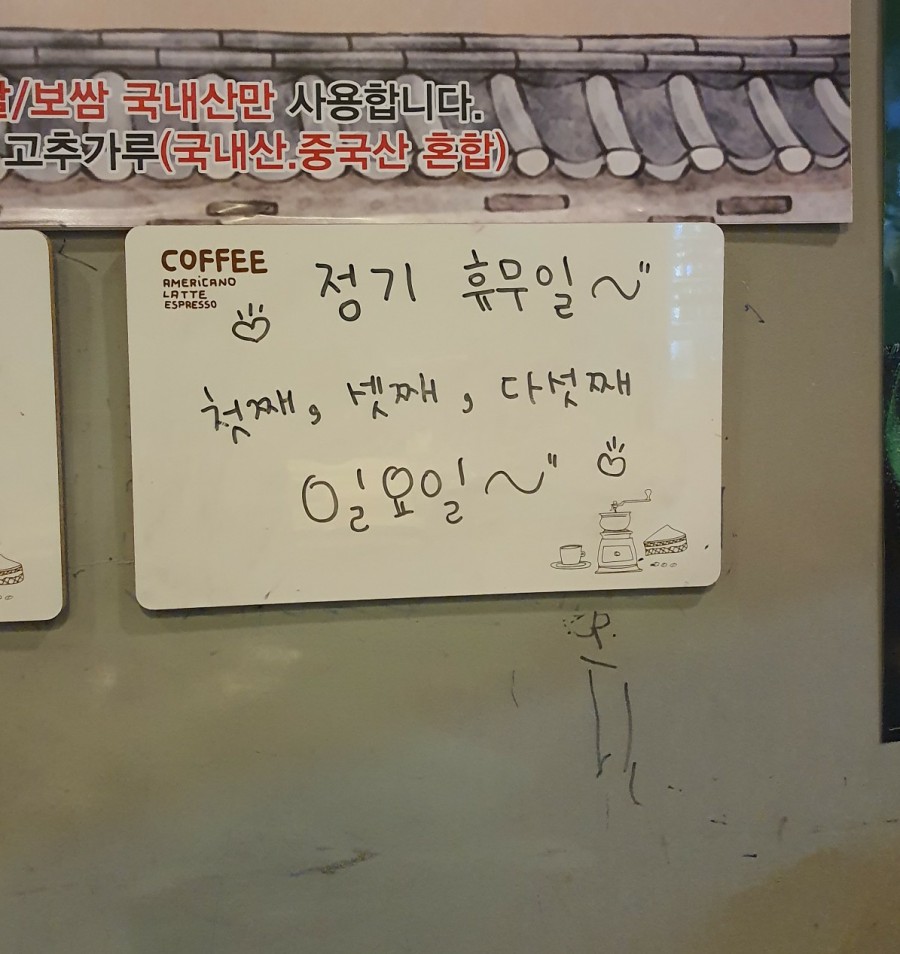 /보쌈 국내산만 사용합니다.
고추가루(국내산.중국산 혼합)
COFFEE
AMERICANO
LATTE
ESPRESSO
정기 휴무일~"
첫째, 셋째, 다섯째
일요일~"